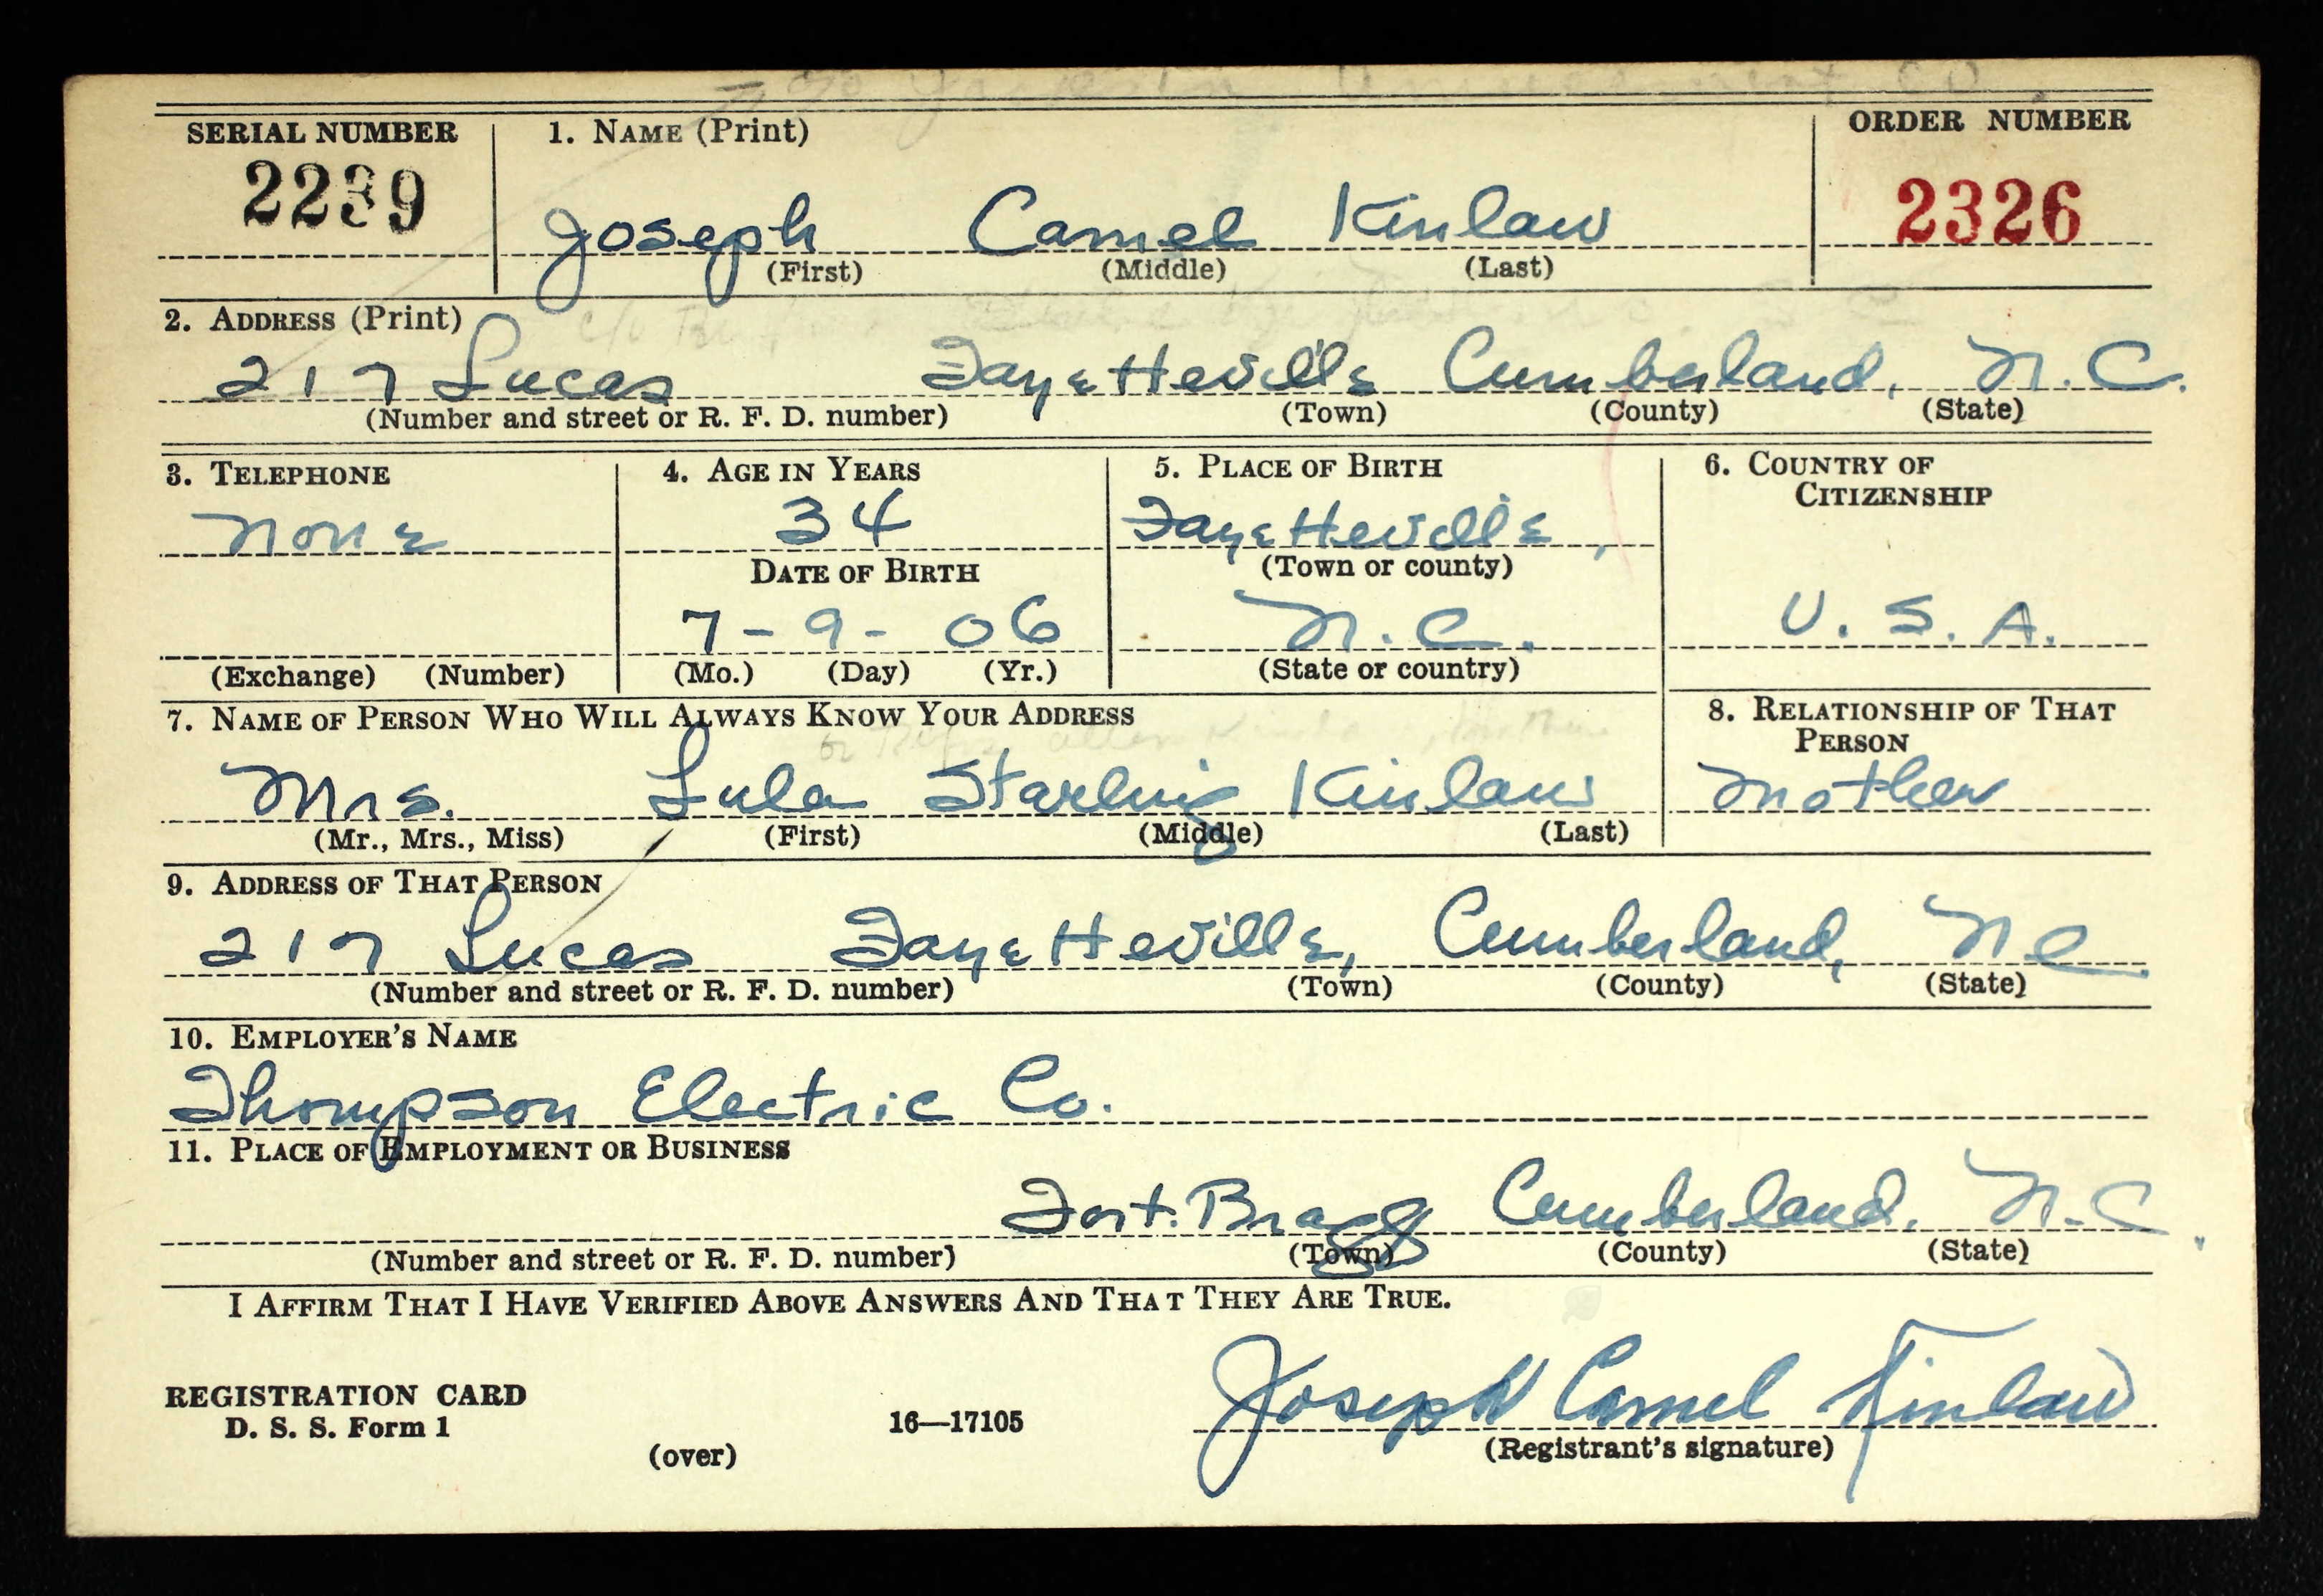 SERIAL NUMBER 1. NAME (Print) ORDER NUMBER
2239 Joseph Camel Kinlaw 2326
(First) (Middle) (Last)
2. ADDRESS (Print)
217 Lucas Fayetteville Cumberland, N.C.
(Number and street or R. F. D. number) (Town) (County) (State)
3. TELEPHONE 4. AGE IN YEARS 5. PLACE OF BIRTH 6. COUNTRY OF
CITIZENSHIP
None 34 Fayetteville,
DATE OF BIRTH (Town or county)
7-9-06 N.C. U.S.A.
(Exchange) (Number) (Mo.) (Day) (Yr.) (State or country)
7. NAME OF PERSON WHO WILL ALWAYS KNOW YOUR ADDRESS 8. RELATIONSHIP OF THAT
PERSON
Mrs. Lula Starling Kinlaw Mother
(Mr., Mrs., Miss) (First) (Middle) (Last)
9. ADDRESS OF THAT PERSON
217 Lucas Fayetteville, Cumberland, NC
(Number and street or R. F. D. number) (Town) (County) (State)
10. EMPLOYER'S NAME
Thompson Electric Co.
11. PLACE OF EMPLOYMENT OR BUSINESS
Fort. Bragg Cumberland, N.C.
(Number and street or R. F. D. number) (Town) (County) (State)
I AFFIRM THAT I HAVE VERIFIED ABOVE ANSWERS AND THAT THEY ARE TRUE.
REGISTRATION CARD
D. S. S. Form 1 16—17105 Joseph Camel Kinlaw
(over) (Registrant's signature)